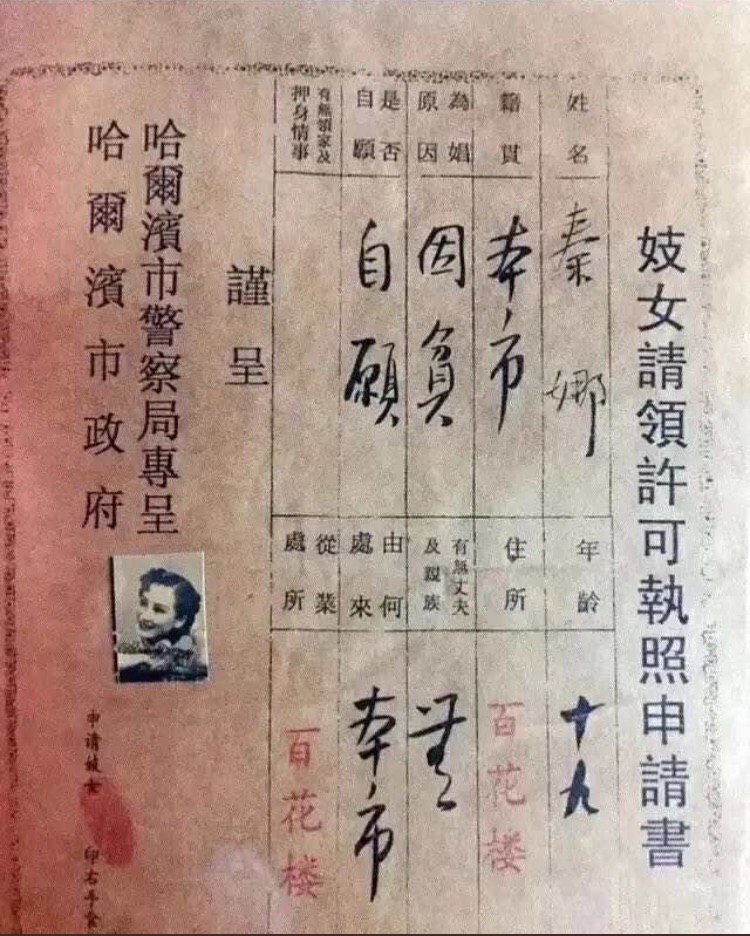 妓女請領許可執照申請書
姓名 秦娜 年齡 十九
籍貫 本市 住所 百花楼
為娼
原因 因貧 有無丈夫
及親族 無
是否
自願 自願 由何
處來 本市
有無領家及
押身情事 從業
處所 百花楼
謹呈
哈爾濱市警察局專呈
哈爾濱市政府
申请妓女 印右手食